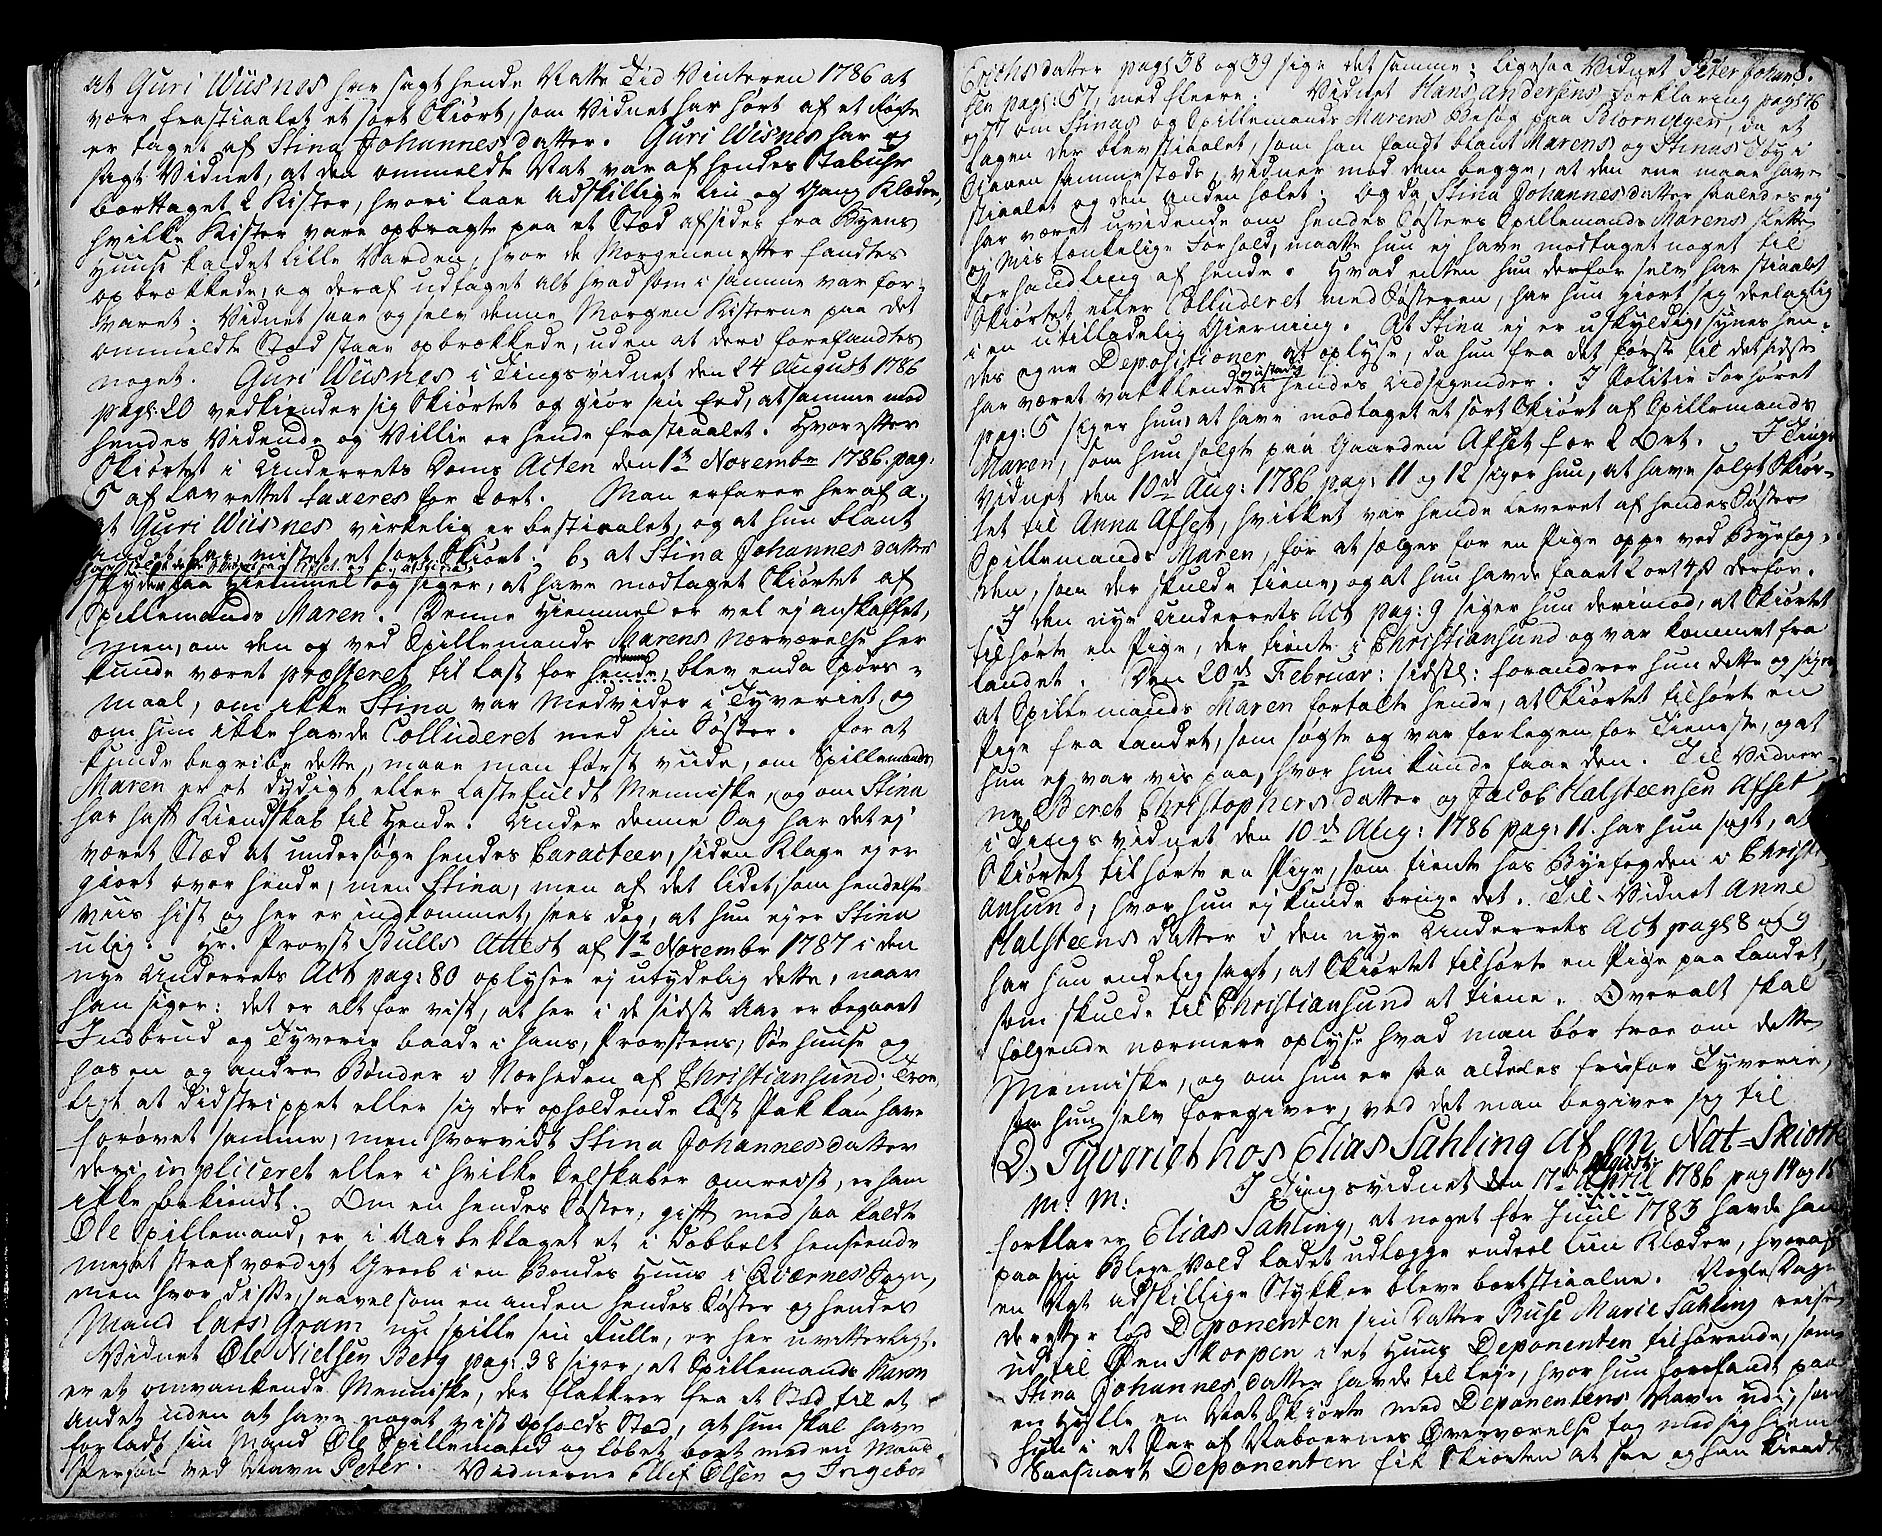 at Guri Wiisnes har sagt hende Natte Tid Vinteren 1786 at
være frastiaalet et sort Skiørt, som Vidnet har hørt af et Rogte
er taget af Stina Johannesdatter. Guri Wisnes har og
sagt Vidnet, at den ommeldte Nat var af hendes Stabuhr
borttaget 2 Kister, hvori laae adskillige Lin og Gang Klæder,
hvilke Kister vare opbragte paa et Stæd afsides fra Byens
Huuse kaldet lille Varden, hvor de Morgenen efter fandtes
opbrækkede, og deraf udtaget alt hvad som i samme var for-
varet; Vidnet saae og selv denne Morgen Kisterne paa det
ommeldte Stæd staae opbrækkede, uden at deri forefandtes
noget. Guri Wiisnes i Tingsvidnet den 24 August 1786
pag: 20 vedkiender sig Skiørtet og giør sin Eed, at samme mod
hendes Vidende og Villie er hende frastiaalet. Hvorefter
Skiørtet i Underrets Doms Acten den 1te Novembr 1786. pag:
5 af Lavrettet taxeres for 2 ort. Man erfarer heraf a.,
at Guri Wiisnes virkelig er bestiaalet, og at hun blant
andet har mistet et sort Skiørt; b, at Stina Johannesdatter
skyder paa Hiemmel og siger, at have modtaget Skiørtet af
Spillemands Maren. Denne Hiemmel er vel ej anskaffet,
men, om den og ved Spillemands Marens Nærværelse her
kunde været præsteret til Last for hende, blev enda Spørs-
maal, om ikke Stina var Medvider i Tyveriet og
om hun ikke havde Colluderet med sin Søster. For at
kunde begribe dette, maae man først viide, om Spillemands
Maren er et dydigt eller lastefuldt Menniske, og om Stina
har haft Kiendskab til Hende. Under denne Sag har det ej
været Stæd at undersøge hendes Caracteer, siden Klage ej er
giort over hende, men Stina, men af det lidet, som hendelse
viis hist og her er indkommet, sees dog, at hun ej er Stina
ulig. Hr. Provst Bulls Attest af 1te Novembr 1787 i den
nye Underrets Act pag: 80 oplyser ej utydelig dette, naar
han siger: det er alt for vist, at her i de sidste Aar er begaaet
Indbrud og Tyverie baade i hans, Provstens, Søehuuse og
hos en og anden Bønder i Nærheden af Christiansund; Troe
ligt at Didstrippet eller sig der opholdende løst Pak kan have
forøvet samme, men hvorvidt Stina Johannesdatter
deri impliceret eller i hvilke Selskaber omreist, er ham
ikke bekiendt. Om en hendes Søster, gift med saa kaldte
Ole Spillemand, er i Aar beklaget et i dobbelt henseende
meget strafværdigt Greeb i en Bondes Huus i Qværnes Sogn,
men hvor disse, saavelsom en anden hendes Søster og hendes
Mand Lars Gram nu spille sin Rulle, er her uvitterligt.
Vidnet Ole Nielsen Berg pag: 38 siger, at Spillemands Maren
er et omvankende Menniske, der flakker fra et Stæd til et
andet uden at have noget vist opholds Stæd, at hun skal have
forladt sin Mand Ole Spillemand og løbet bort med en Mands
Person ved Navn Peter. Vidnerne Ellef Olsen og Ingebor
Erichsdatter pag: 38 og 39 sige det samme; ligesaa Vidnet Peter Johan
sen pag: 57, med fleere. Vidnet Hans Andersens Forklaring pag: 76
og 77 om Stinas og Spillemands Marens Besøg paa Biørnvegen, da et
Lagen der blev stiaalet, som han fandt blant Marens og Stinas Tøy i
Skoven sammestæds, vidner mod dem begge, at den ene maae have
stiaalet og den anden hælet. Og da Stina Johannesdatter saaledes ej
har været uvidende om hendes Søsters Spillemands Marens slette
og Mistænkelige Forhold, maatte hun ej have modtaget noget til
Forhandling af hende. Hvad enten hun derfor selv har stiaalet
Skiørtet eller Colluderet med Søsteren, har hun giort sig deelagtig
i en utilladelig Gierning. At Stina ej er uskyldig, synes hen-
des egne Depositioner at oplyse, da hun fra det første til det sidste
har været vakklende i hendes Udsigender. I Politie Forhøret
pag: 5 siger hun, at have modtaget et sort Skiørt af Spillemands
Maren, som hun solgte paa Gaarden Afset for 2 Ort. I Tings
Vidnet den 10de Aug: 1786 pag: 11 og 12 siger hun, at have solgt Skiør-
tet til Anna Afset, hvilket var hende leveret af hendes Søster
Spillemands Maren, for at sælges for en Pige oppe ved Byefog-
den, som der skulde tiene, og at hun havde faaet 2 ort 4 ß derfor.
I den nye Underrets Act pag: 9 siger hun derimod, at Skiørtet
tilhørte en Pige, der tiente i Christiansund og var kommet fra
Landet. Den 20de Februar: sidstl: forandrer hun dette og siger
at Spillemands Maren fortalte hende, at Skiørtet tilhørte en
Pige fra Landet, som søgte og var forlegen for Tieneste, og at
hun ej var vis paa, hvor hun kunde faae den. Til Vidner-
ne Beret Christophersdatter og Jacob Halsteensen Afset
i Tingsvidnet den 10de Aug: 1786 pag: 11. har hun sagt, at
Skiørtet tilhørte en Pige, som tiente hos Byefogden i Christi
ansund, hvor hun ej kunde bruge det. Til Vidnet Anne
Halsteensdatter i den nye Underrets Act pag: 8 og 9
har hun endelig sagt, at Skiørtet tilhørte en Pige paa Landet,
som skulde til Christiansund at tiene. Overalt skal
følgende nærmere oplyse hvad man bør troe om dette
Menniske, og om hun er saa aldeles frie for Tyverie,
som hun selv foregiver, ved det man begiver seg til
D, Tyveriet hos Elias Sahling af en Nat-Skiorte
m: m: I Tingsvidnet den 17de August 1786 pag 14 og 15
forklarer Elias Sahling, at noget før Juul 1783 havde han
paa sin Blege Vold ladet udlægge endeel liin Klæder, hvoraf
en Nat adskillige Stykker bleve bortstiaalne. Nogle Dage
derefter lod Deponenten sin Datter Buse Marie Sahling reise
ud til Øen Skorpen i et Huus Deponenten tilhørende, som
Stina Johannesdatter havde til Leje, hvor hun forefandt paa
en Hylle en Nat Skiorte med Deponentens Navn udi, som
hun i et Par af Naboernes Overværelse tog med sig hiem.
Saasnart Deponenten fik Skiorten at see og han kiendte